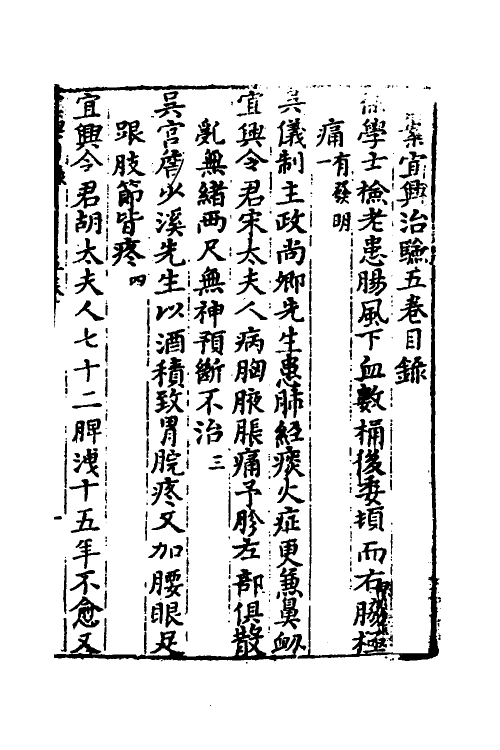 案宜興治驗五卷目錄
徐學士檢老患腸風下血數桶後委頓而右脇極
痛一有發明
吳儀制主政尚卿先生患肺經痰火症更兼鼻衂
宜興令君宋太夫人病胸腋脹痛予胗左部俱散
亂無緒兩尺無神預斷不治三
吳宮詹少溪先生以酒積致胃脘疼又加腰眼足
跟肢節皆疼四
宜興令君胡太夫人七十二脾洩十五年不愈又